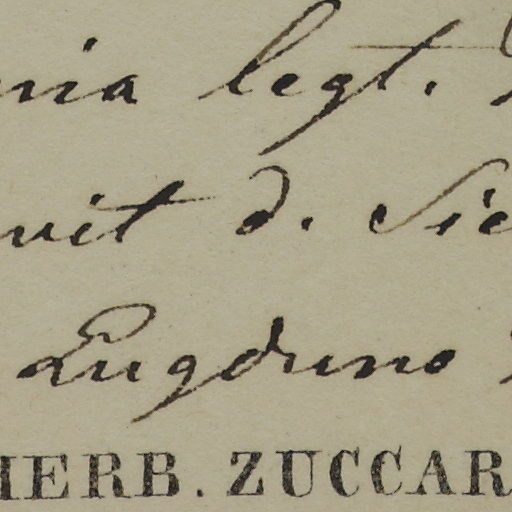 nia legt.
vit d. Sie
Lugduno
HERB. ZUCCAR